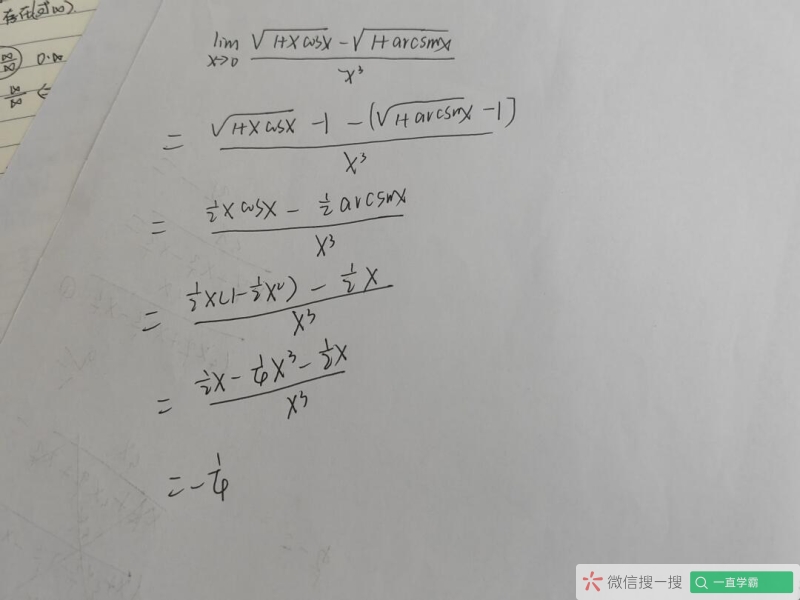 存在(或∞)
∞/∞ 0·∞
∞/∞
lim x→0 (√(1+xcosx) - √(1+arcsinx)) / x³
= (√(1+xcosx) -1 - (√(1+arcsinx) -1)) / x³
= (½xcosx - ½arcsinx) / x³
= (½x(1-½x²) - ½x) / x³
= (½x - ¼x³ - ½x) / x³
= -¼
微信搜一搜 一直学霸